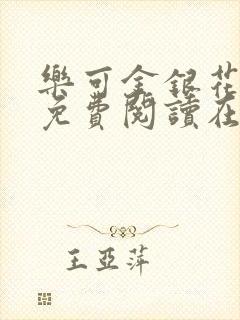 樂可金銀花
免費閱讀在
王亞萍